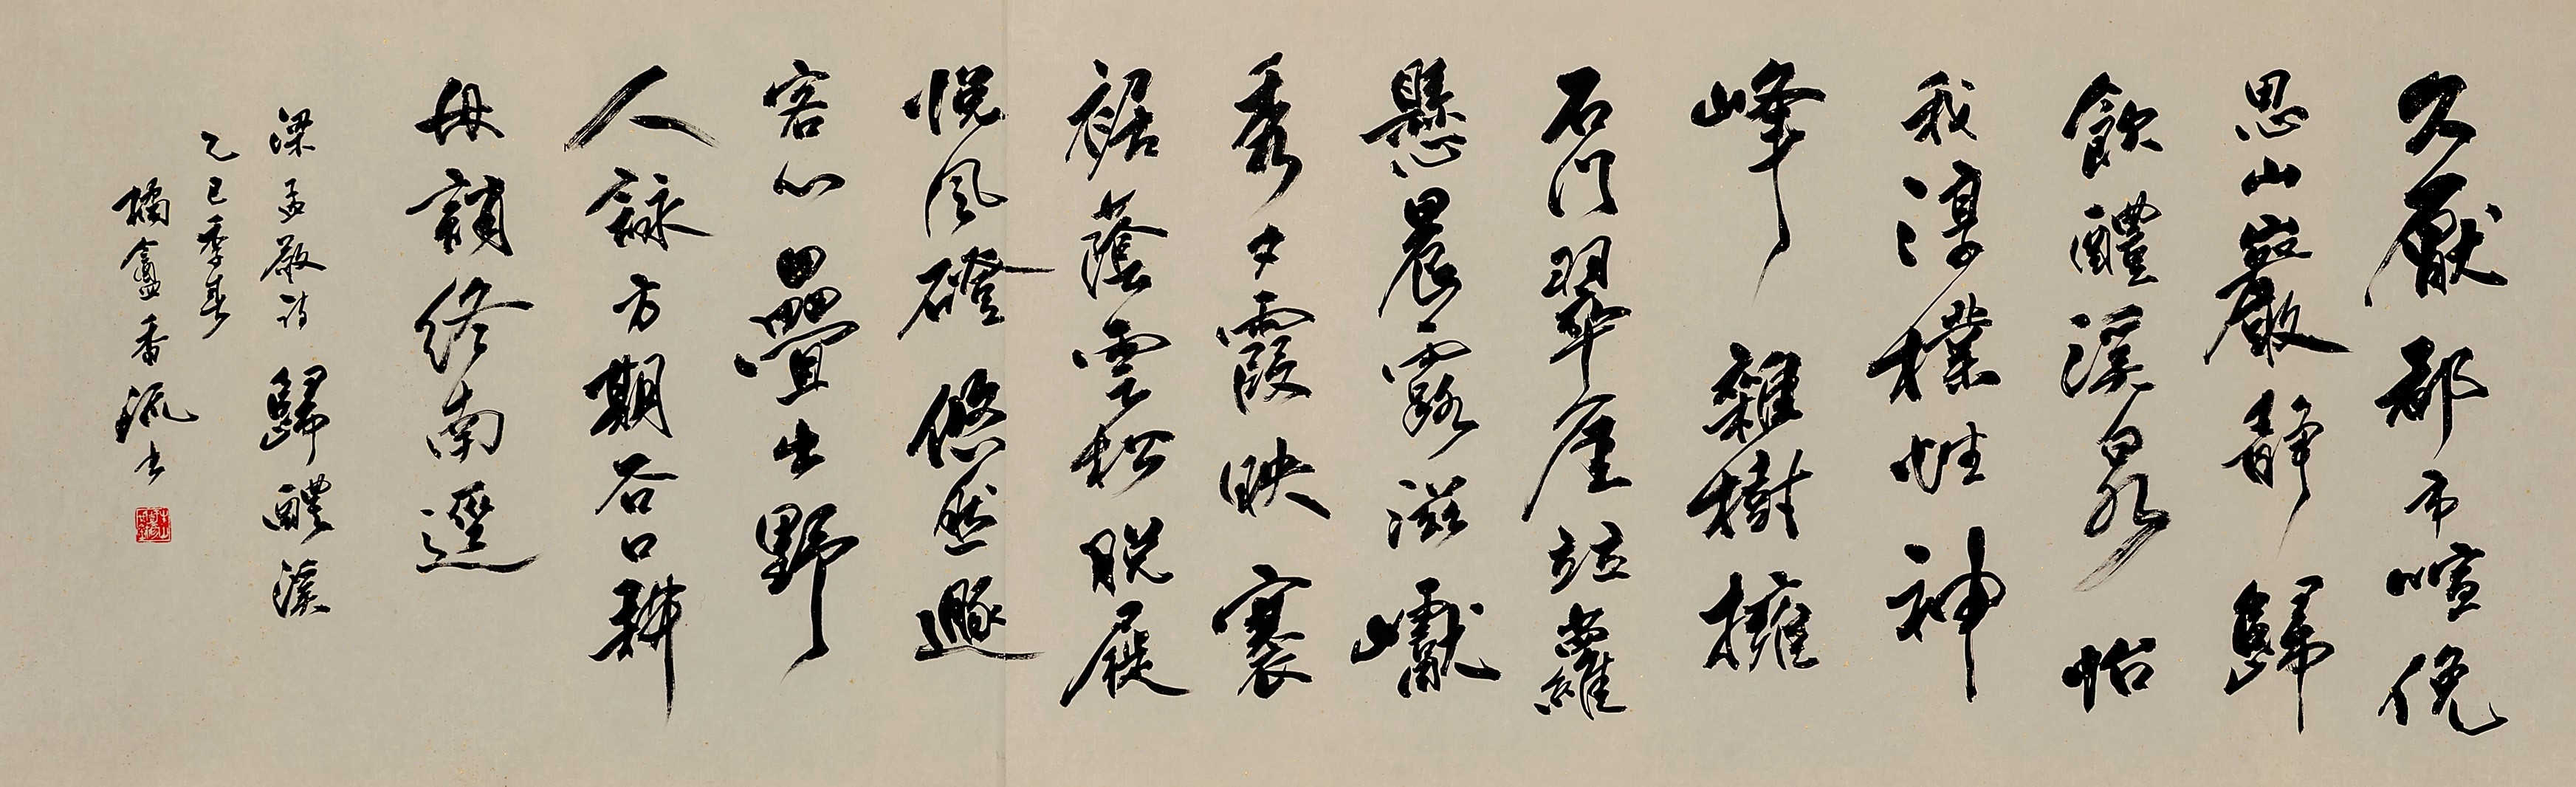 久厭都市喧俛
思山巖靜歸
飲醴溪泉怡
我淳樸性神
峰雜樹擁
石門翠崖竝蘿
懸晨露滋巘
秀夕霞映褰
裾蔭雲松脫屐
悅風磴悠然遯
客心疊出野
人詠方期谷口耕
毋誚終南逕
梁孟敬詩歸醴溪
乙巳季春
橘盦香流書